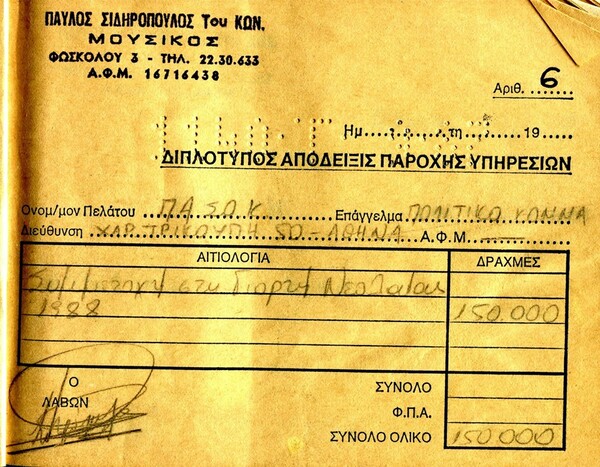 ΠΑΥΛΟΣ ΣΙΔΗΡΟΠΟΥΛΟΣ Του ΚΩΝ.
ΜΟΥΣΙΚΟΣ
ΦΩΣΚΟΛΟΥ 3 - ΤΗΛ. 22.30.633
Α.Φ.Μ. 16716438
Αριθ. 6
Ημ......τη......19.....
ΔΙΠΛΟΤΥΠΟΣ ΑΠΟΔΕΙΞΙΣ ΠΑΡΟΧΗΣ ΥΠΗΡΕΣΙΩΝ
Ονομ/μον Πελάτου ΠΑ.ΣΟ.Κ Επάγγελμα ΠΟΛΙΤΙΚΟ ΚΟΜΜΑ
Διεύθυνση ΧΑΡ. ΤΡΙΚΟΥΠΗ 50 - ΑΘΗΝΑ Α.Φ.Μ.
ΑΙΤΙΟΛΟΓΙΑ ΔΡΑΧΜΕΣ
Συμμετοχή στη Γιορτή Νεολαίας
1988 150.000
Ο ΣΥΝΟΛΟ
ΛΑΒΩΝ Φ.Π.Α.
ΣΥΝΟΛΟ ΟΛΙΚΟ 150.000